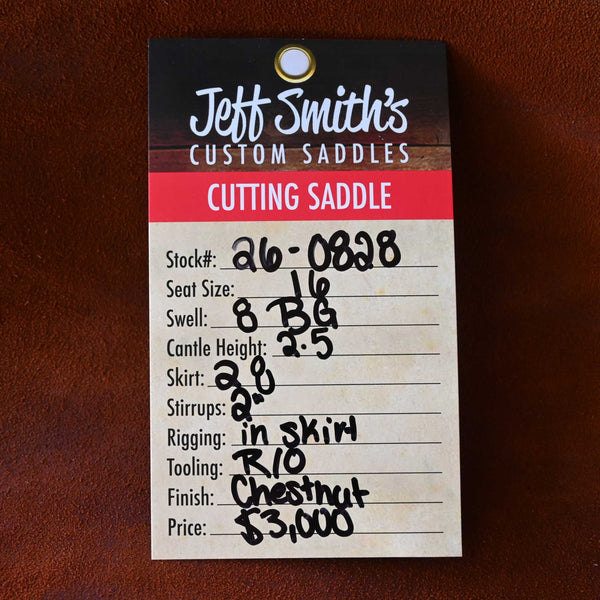 Jeff Smith's
CUSTOM SADDLES
CUTTING SADDLE
Stock#: 26-0828
Seat Size: 16
Swell: 8 BG
Cantle Height: 2.5
Skirt: 28
Stirrups: 2"
Rigging: in skirt
Tooling: R/O
Finish: Chestnut
Price: $3,000